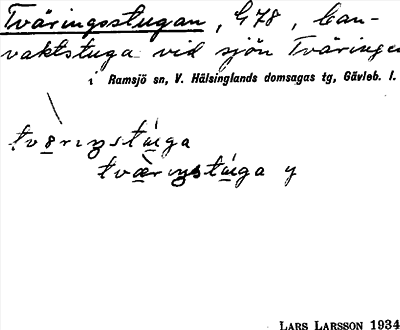 Tväringsstugan, G78, ban-
vaktstuga vid sjön Tväringen
i Ramsjö sn, V. Hälsinglands domsagas tg, Gävleb. l.
LARS LARSSON 1934